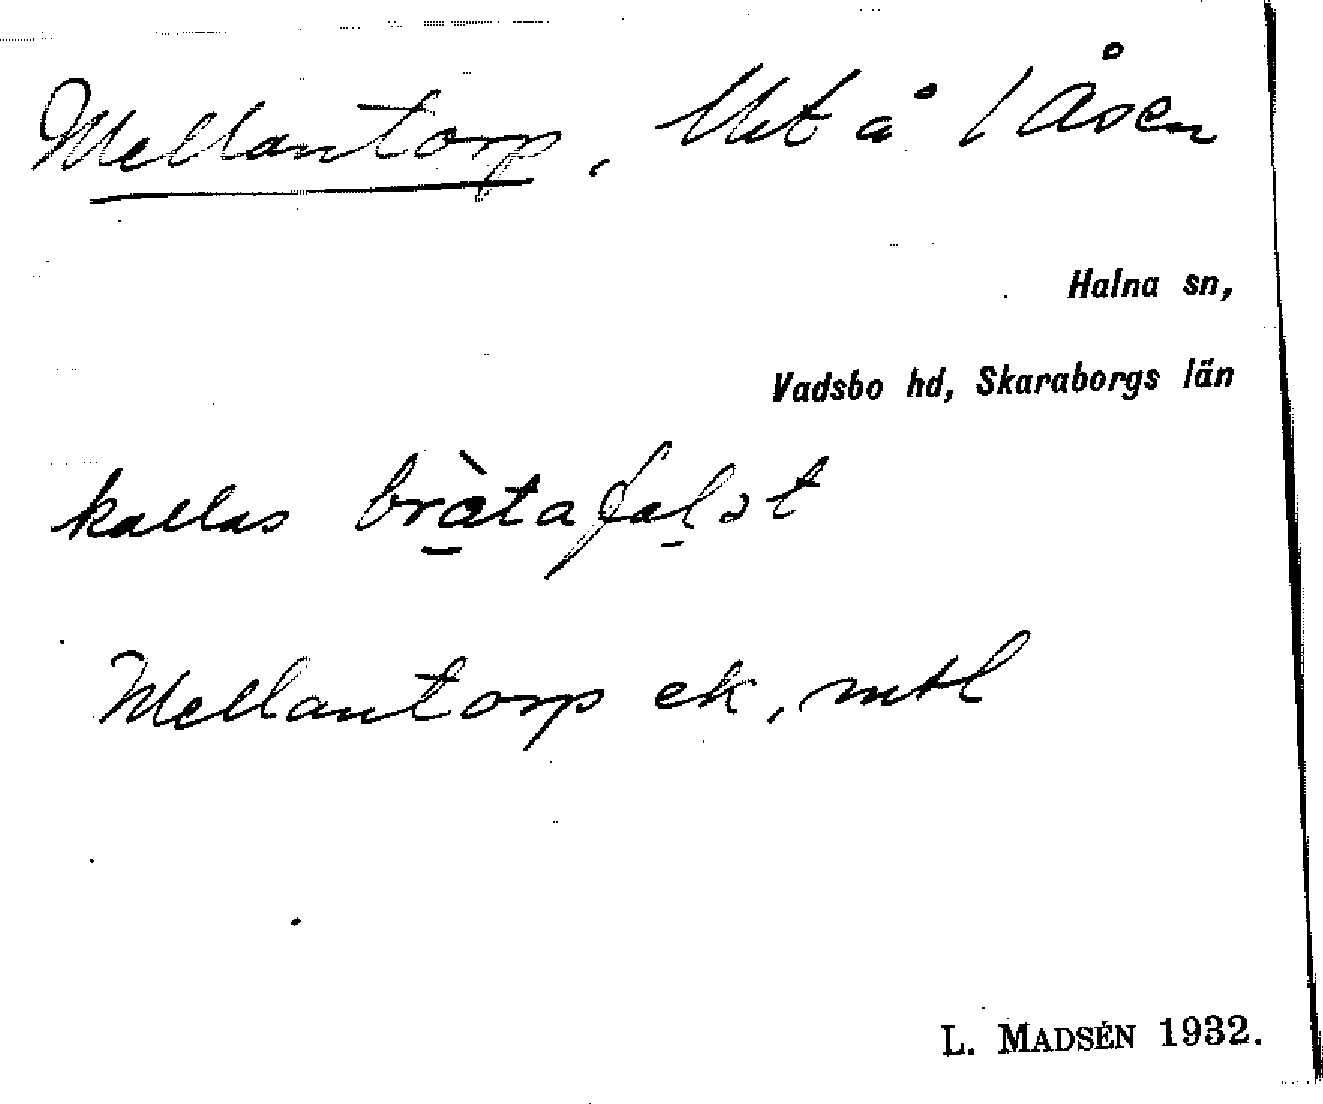 Mellantorp, lht å 1 Åsen
Halna sn,
Vadsbo hd, Skaraborgs län
kallas
Mellantorp ek, mtl
L. MADSÉN 1932.